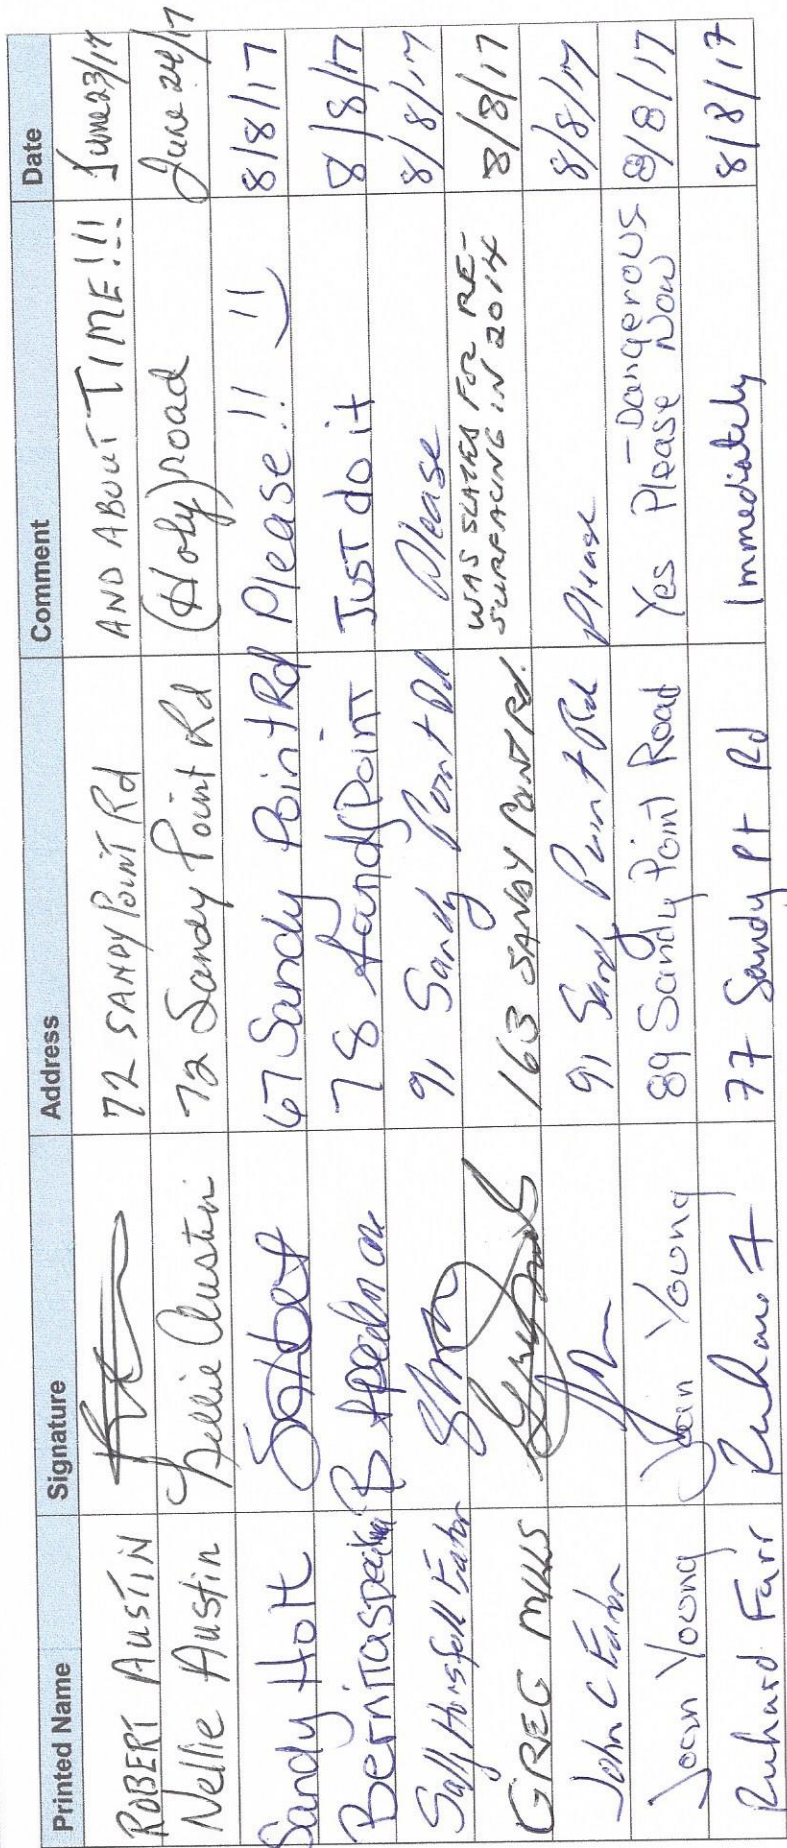 Printed Name Signature Address Comment Date
ROBERT AUSTIN 72 SANDY POINT Rd AND ABOUT TIME!!! June 23/17
Nellie Austin Nellie Austin 72 Sandy Point Rd (Holy) road June 24/17
Sandy Holt 67 Sandy Point Rd Please!! 8/8/17
78 Sandy Point JUST do it 8/8/17
Sally 91 Sandy Point Rd Please 8/8/17
GREG MILLS 163 SANDY POINT Rd. WAS SLATED FOR RE-
SURFACING IN 2014 8/8/17
John C Eaton 91 Sandy Point Rd Please 8/8/17
Joan Young Joan Young 89 Sandy Point Road Yes Please - Dangerous
Now 8/8/17
Richard Farr 77 Sandy Pt Rd Immediately 8/8/17